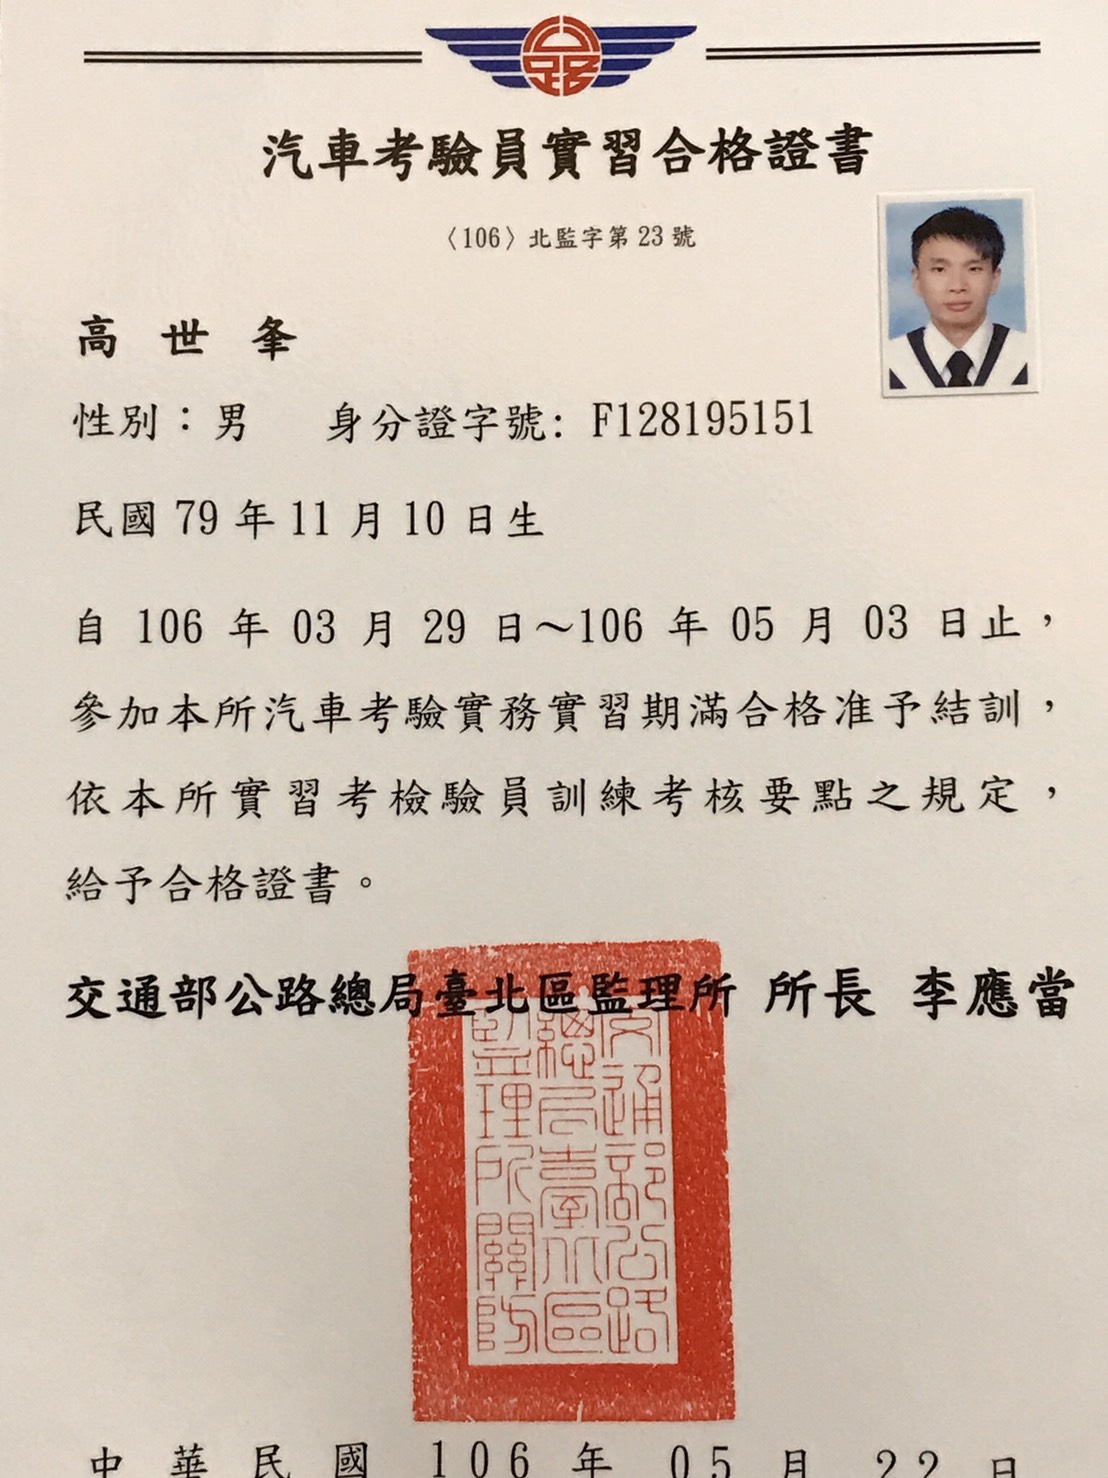 公路
汽車考驗員實習合格證書
〈106〉北監字第 23 號
高世夆
性別：男 身分證字號: F128195151
民國 79 年 11 月 10 日生
自 106 年 03 月 29 日～106 年 05 月 03 日止，
參加本所汽車考驗實務實習期滿合格准予結訓，
依本所實習考檢驗員訓練考核要點之規定，
給予合格證書。
交通部公路總局臺北區監理所 所長 李應當
交通部公路
總局臺北區
監理所關防
中華民國 106 年 05 月 22 日